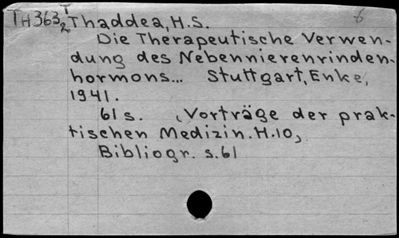 TH363 T Thaddea, H.S. 6
2
Die Therapeutische Verwen-
dung des Nebennierenrinden-
hormons... Stuttgart, Enke,
1941.
61 s. (Vorträge der prak-
tischen Medizin. H.10,
Bibliogr. s.61